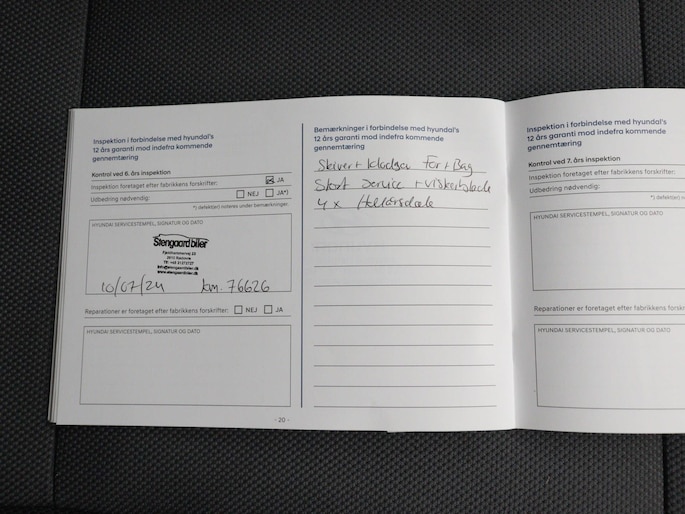 Inspektion i forbindelse med hyundai's
12 års garanti mod indefra kommende
gennemtæring
Kontrol ved 6. års inspektion
Inspektion foretaget efter fabrikkens forskrifter: JA
Udbedring nødvendig: NEJ JA*)
*) defekt(er) noteres under bemærkninger
HYUNDAI SERVICESTEMPEL, SIGNATUR OG DATO
Stengaard biler
10/07/24 km. 76626
Reparationer er foretaget efter fabrikkens forskrifter: NEJ JA
HYUNDAI SERVICESTEMPEL, SIGNATUR OG DATO
- 20 -
Bemærkninger i forbindelse med hyundai's
12 års garanti mod indefra kommende
gennemtæring
Skiver + klodser For + Bag
Stort Service + viskerblade
4 x Helårsdæk
Inspektion i forbindelse med hyundai's
12 års garanti mod indefra kommende
gennemtæring
Kontrol ved 7. års inspektion
Inspektion foretaget efter fabrikkens forskrifter:
Udbedring nødvendig:
*) defekt(er) note
HYUNDAI SERVICESTEMPEL, SIGNATUR OG DATO
Reparationer er foretaget efter fabrikkens forskri
HYUNDAI SERVICESTEMPEL, SIGNATUR OG DATO